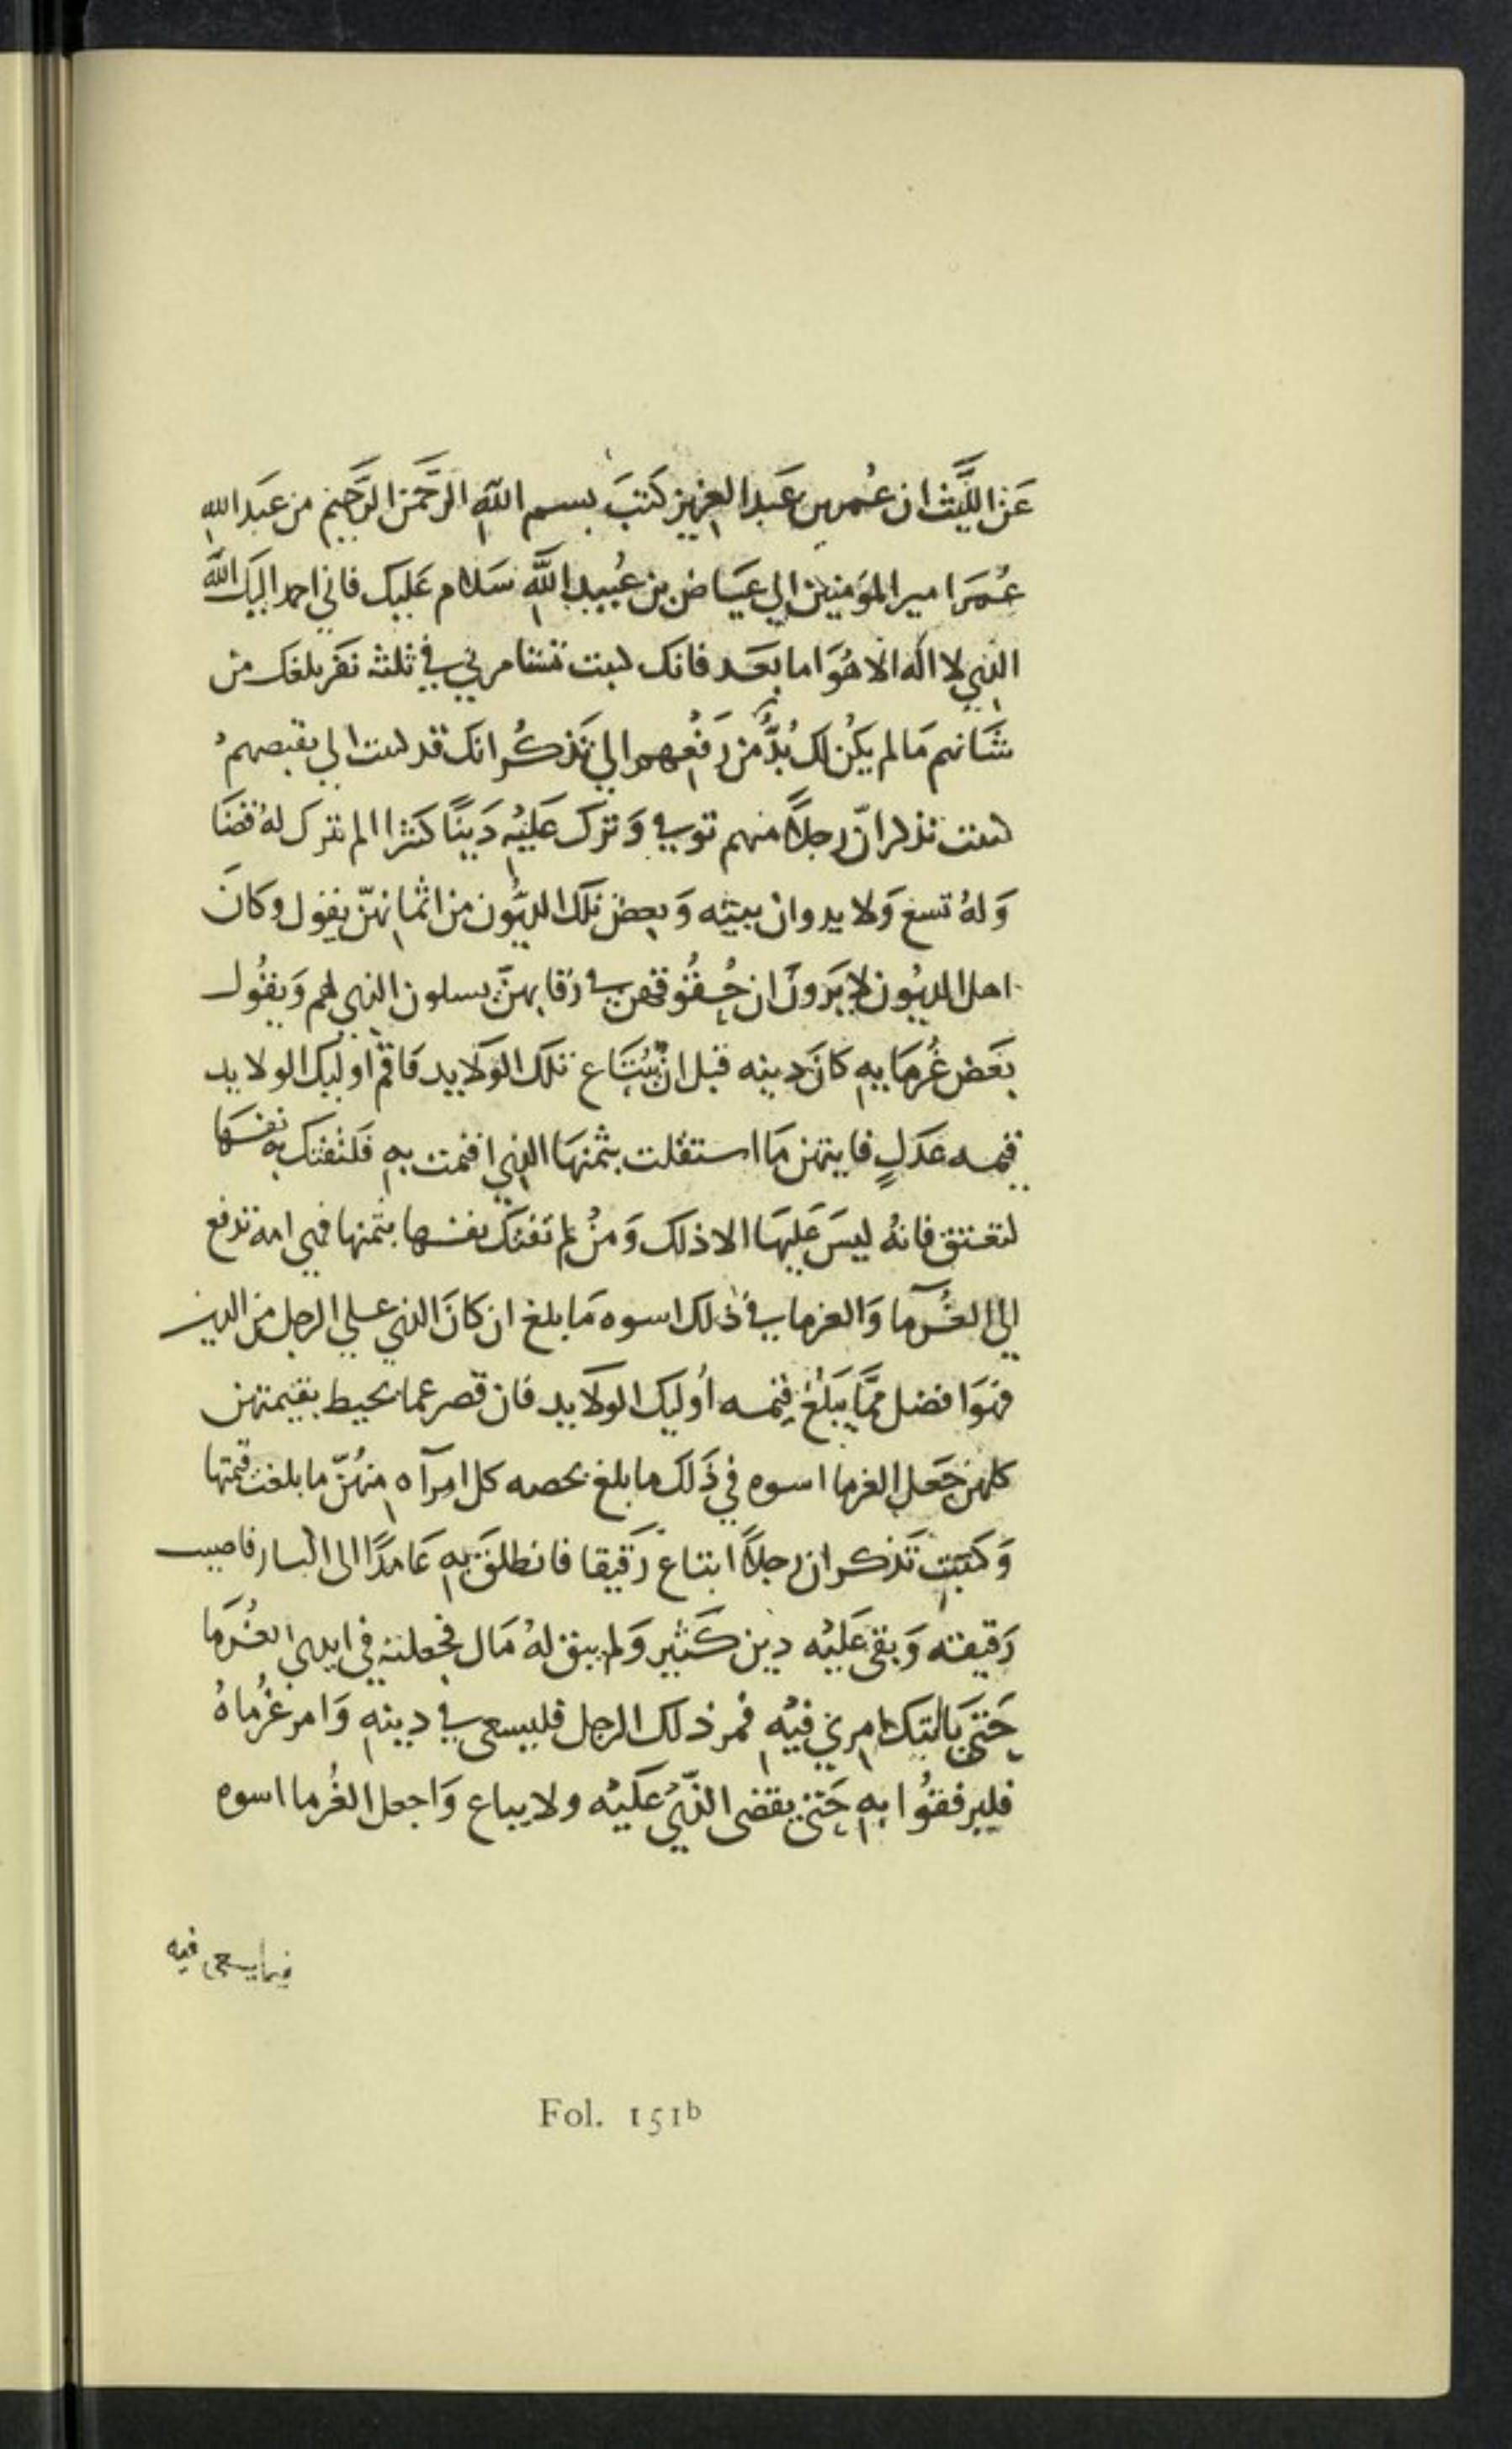 عَن اللَّيث ان عُمر بن عَبد العزيز كَتبَ بسم اللَّه الرَّحمَن الرَّحيم من عَبد اللَّه
عُمَر امير المؤمنين الي عيَاض بن عُبيد اللَّه سَلام عَليك فاني احمد اليك اللَّه
الذي لا اله الا هُوَ اما بَعَد فانك كبت تستامرني في ثلثه نفر بلغك من
شَانهم مَا لم يكن لك بُدٌّ من رَفعهم الي تَذكُر انك قد كتبت الي بقصصهم
كتبت تذكر انّ رجلاً منهم توفي وَ ترك عَليْه دَينًا كثيرا لم يترك لهُ قضَا
وَ لهُ تسع وَلايد وان ببيته وَ بعض تلك الديُون من اثمانهنّ يقول وكانَ
اهل الديُون لا يَرَونَ ان حُقُوقهن في رقابهنّ يسلون الذي لهم وَيقُول
بَعَض غُرمَايه كانَ دينه قبل ان يُبتَاع تلك الوَلايد فاقم اوليك الولايد
قيمه عَدَلٍ فايتهن مَا استقلت بثمنهَا الذي اقيمت به فلتفتك به نفسهَا
لتعتق فانهُ ليسَ عَليهَا الا ذلك وَمنُ لم تَفتك نفسها بثمنها فهي امة تدفع
الي الغُرَما وَالغرما في ذلك اسوه مَا بلغ ان كانَ الذي علي الرجل من الدين
فهوَ افضل ممَّا يَبلُغ قيمه أوليك الولايد فان قصر عما يحيط بقيمتهن
كلهن جَعل الغرما اسوه في ذَلك ما بلغ بحصه كل امرآه منهُنّ ما بلغت قيمتها
وَكتبت تَذكر ان رجلاً ابتاع رَقيقا فانطلقَ به عَامدًا الى اليسار فاصيب
رَقيقه وَبقي عَليْه دين كَثير وَلم يبق لهُ مَال فجعلته في ايدي الغُرَما
حَتىَ ياتيك امري فيْه فمر ذلك الرجل فليسعى في دينه وَامر غُرماهُ
فليرفقوُا به حَتى يقضى الذّي عَليْه ولا يباع وَاجعل الغُرما اسوه
فيما يسعى فيه
Fol. 151b